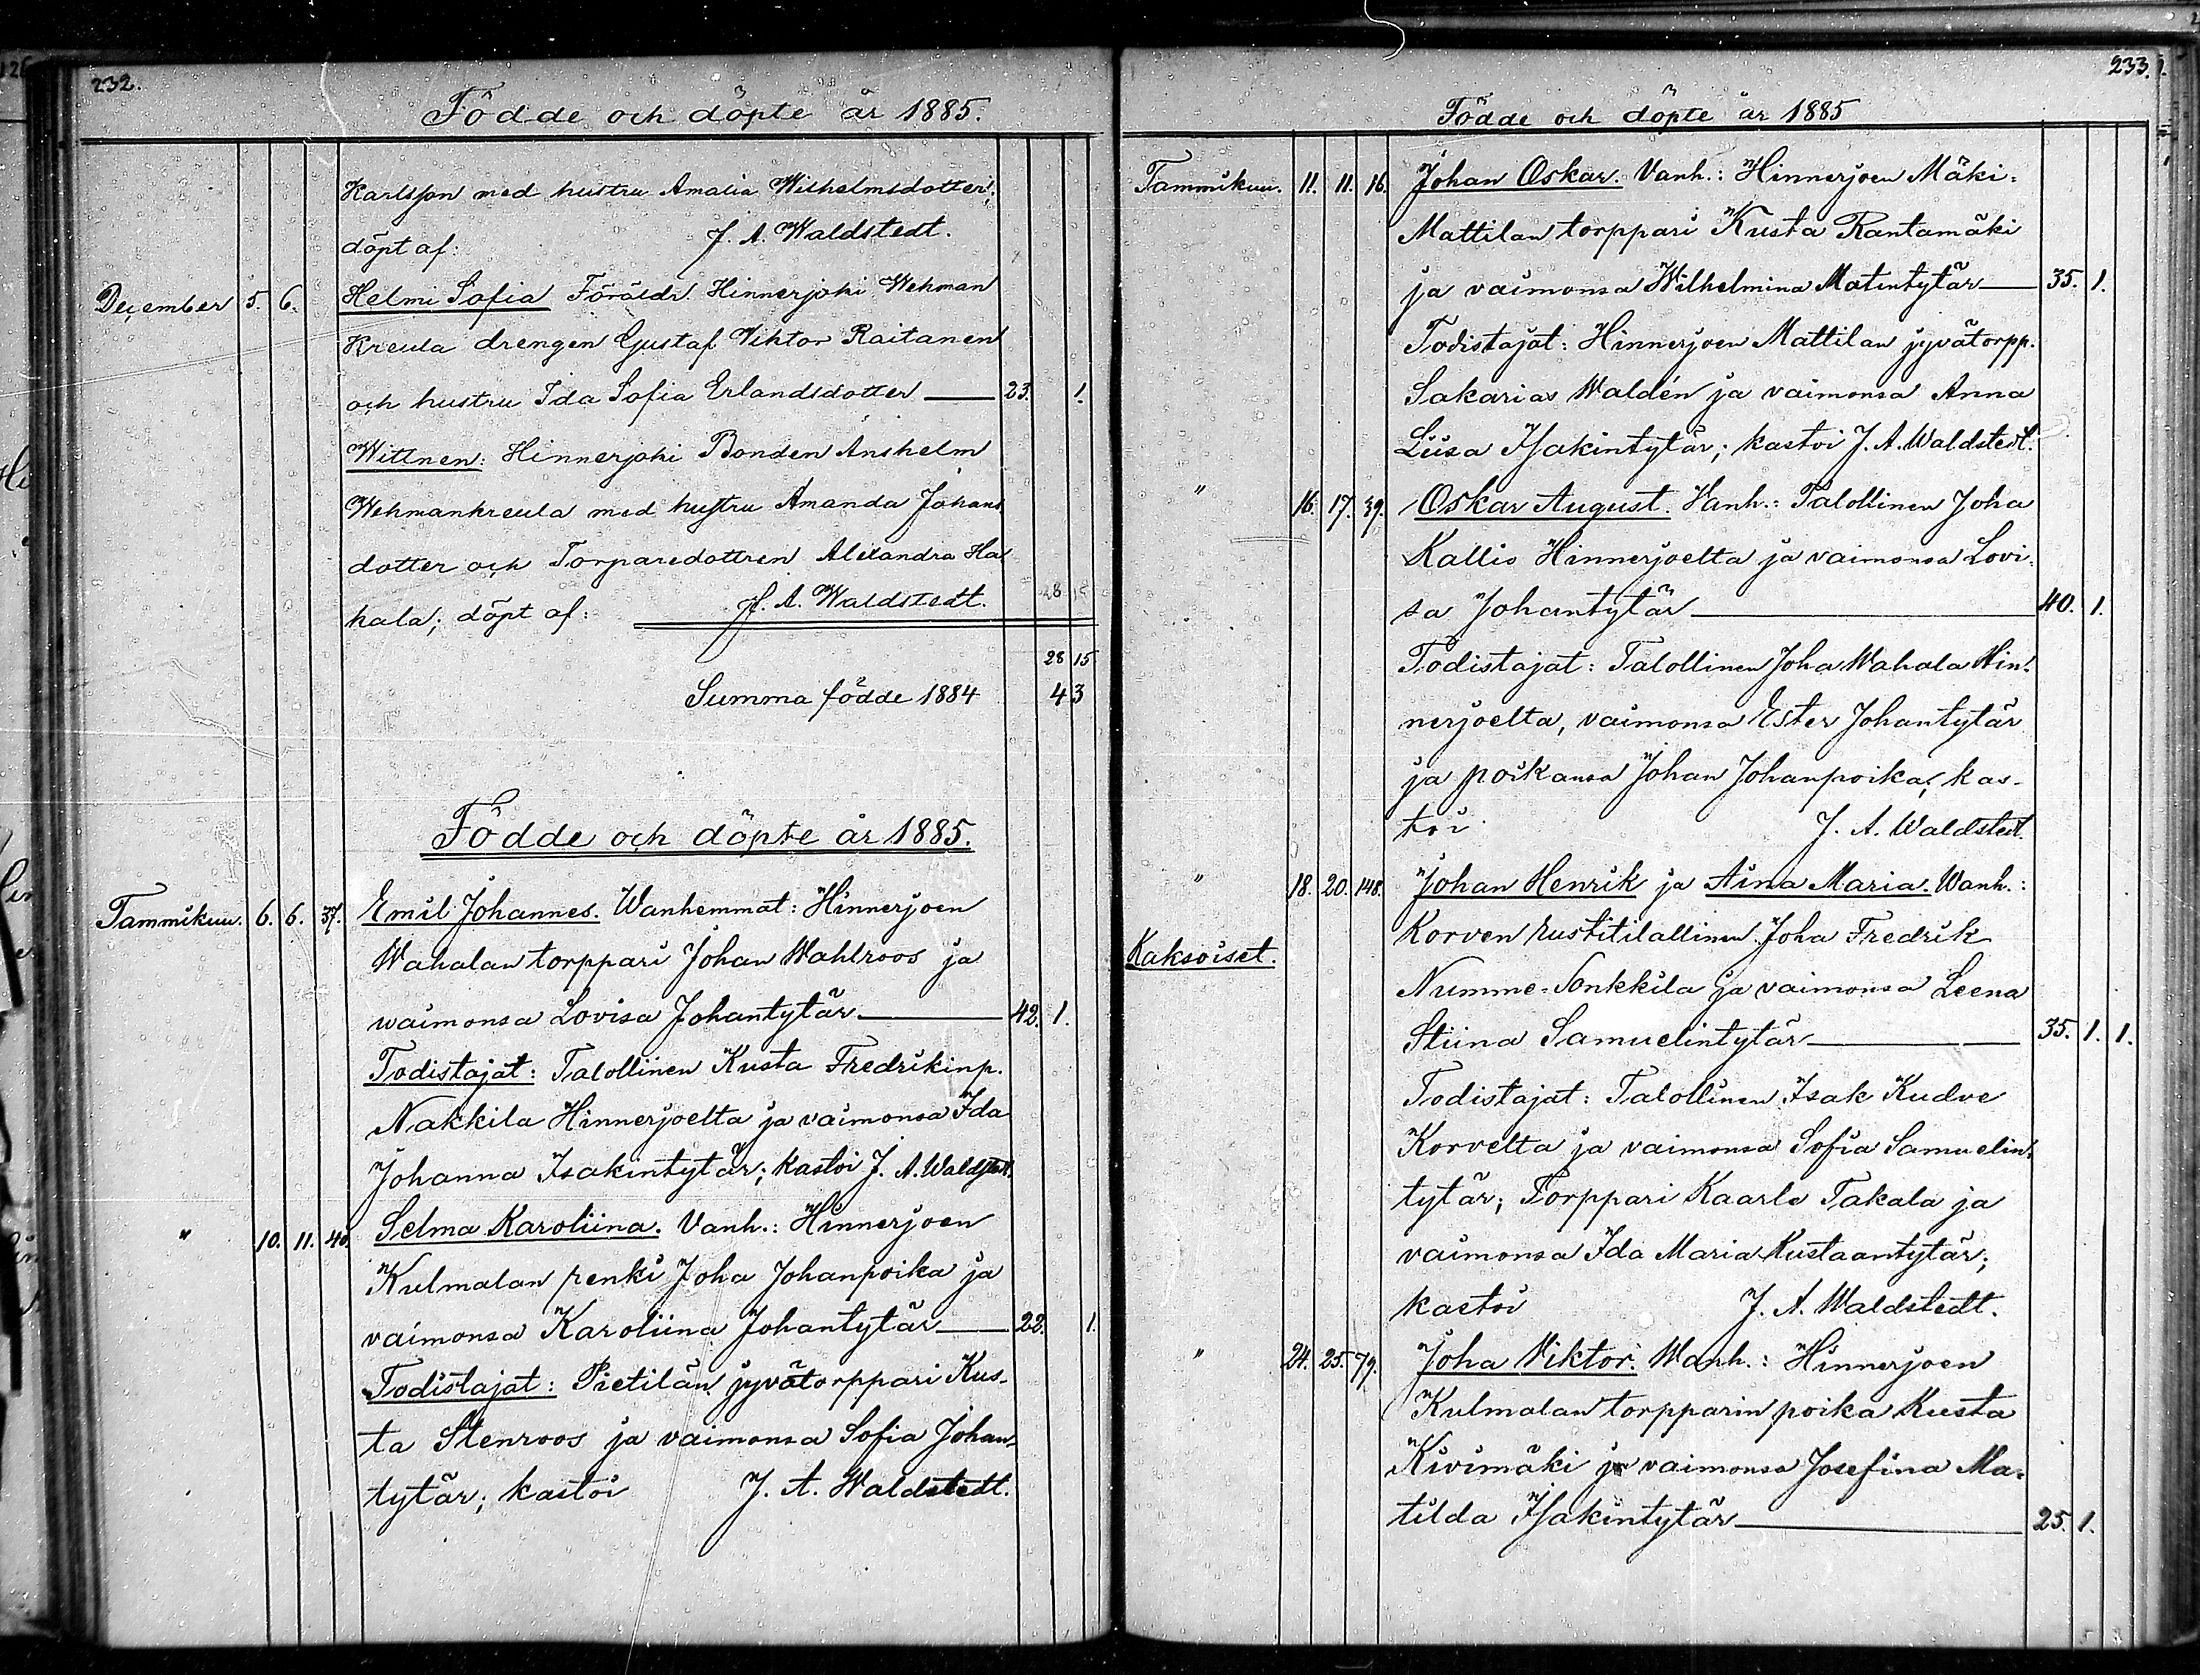 232.
Födde och döpte år 1885.
Karlsson med hustru Amalia Wilhelmsdotter;
döpt af: J. A. Waldstedt.
December 5. 6. Helmi Sofia Föräldr. Hinnerjoki Wehman
Kreula drengen Gustaf Viktor Raitanen
och hustru Ida Sofia Erlandsdotter 23. 1.
Wittnen: Hinnerjoki Bonden Anshelm
Wehmankreula med hustru Amanda Johans
dotter och Torparedottren Alexandra Ha
hala; döpt af: J. A. Waldstedt. 28 15
28 15
Summa födde 1884 43
Födde och döpte år 1885.
Tammikuu. 6. 6. 37. Emil Johannes. Wanhemmat: Hinnerjoen
Wahalan torppari Johan Wahlroos ja
waimonsa Lovisa Johantytär 42. 1.
Todistajat: Talollinen Kusta Fredrikinp.
Nakkila Hinnerjoelta ja vaimonsa Ida
Johanna Isakintytär; kastoi J. A. Waldstedt.
" 10. 11. 40. Selma Karoliina. Vanh.: Hinnerjoen
Kulmalan renki Joha Johanpoika ja
vaimonsa Karoliina Johantytär 22. 1.
Todistajat: Pietilän jyvätorppari Kus-
ta Stenroos ja vaimonsa Sofia Johan-
tytär; kastoi J. A. Waldstedt.
233.
Födde och döpte år 1885
Tammikuu. 11. 11. 16. Johan Oskar. Vanh.: Hinnerjoen Mäki-
Mattilan torppari Kusta Rantamäki
ja vaimonsa Wilhelmina Matintytär 35. 1.
Todistajat: Hinnerjoen Mattilan jyvätorpp.
Sakarias Waldén ja vaimonsa Anna
Liisa Isakintytär; kastoi J. A. Waldstedt.
" 16. 17. 39. Oskar August. Vanh.: Talollinen Joha
Kallis Hinnerjoelta ja vaimonsa Lovi-
sa Johantytär 40. 1.
Todistajat: Talollinen Joha Wahala Hin-
nerjoelta, vaimonsa Ester Johantytär
ja poikansa Johan Johanpoika; kas-
toi J. A. Waldstedt.
" 18. 20. 148. Johan Henrik ja Aina Maria. Wanh.:
Korven rustitilallinen Joha Fredrik
Kaksoiset.
Numme-Sonkkila ja vaimonsa Leena
Stiina Samuelintytär 35. 1. 1.
Todistajat: Talollinen Isak Kudve
Korvelta ja vaimonsa Sofia Samuelin-
tytär; Torppari Kaarle Takala ja
vaimonsa Ida Maria Kustaantytär;
kastoi J. A. Waldstedt.
" 24. 25. 79. Joha Viktor. Wanh.: Hinnerjoen
Kulmalan torpparin poika Kusta
Kivimäki ja vaimonsa Josefina Ma-
tilda Isakintytär 25. 1.